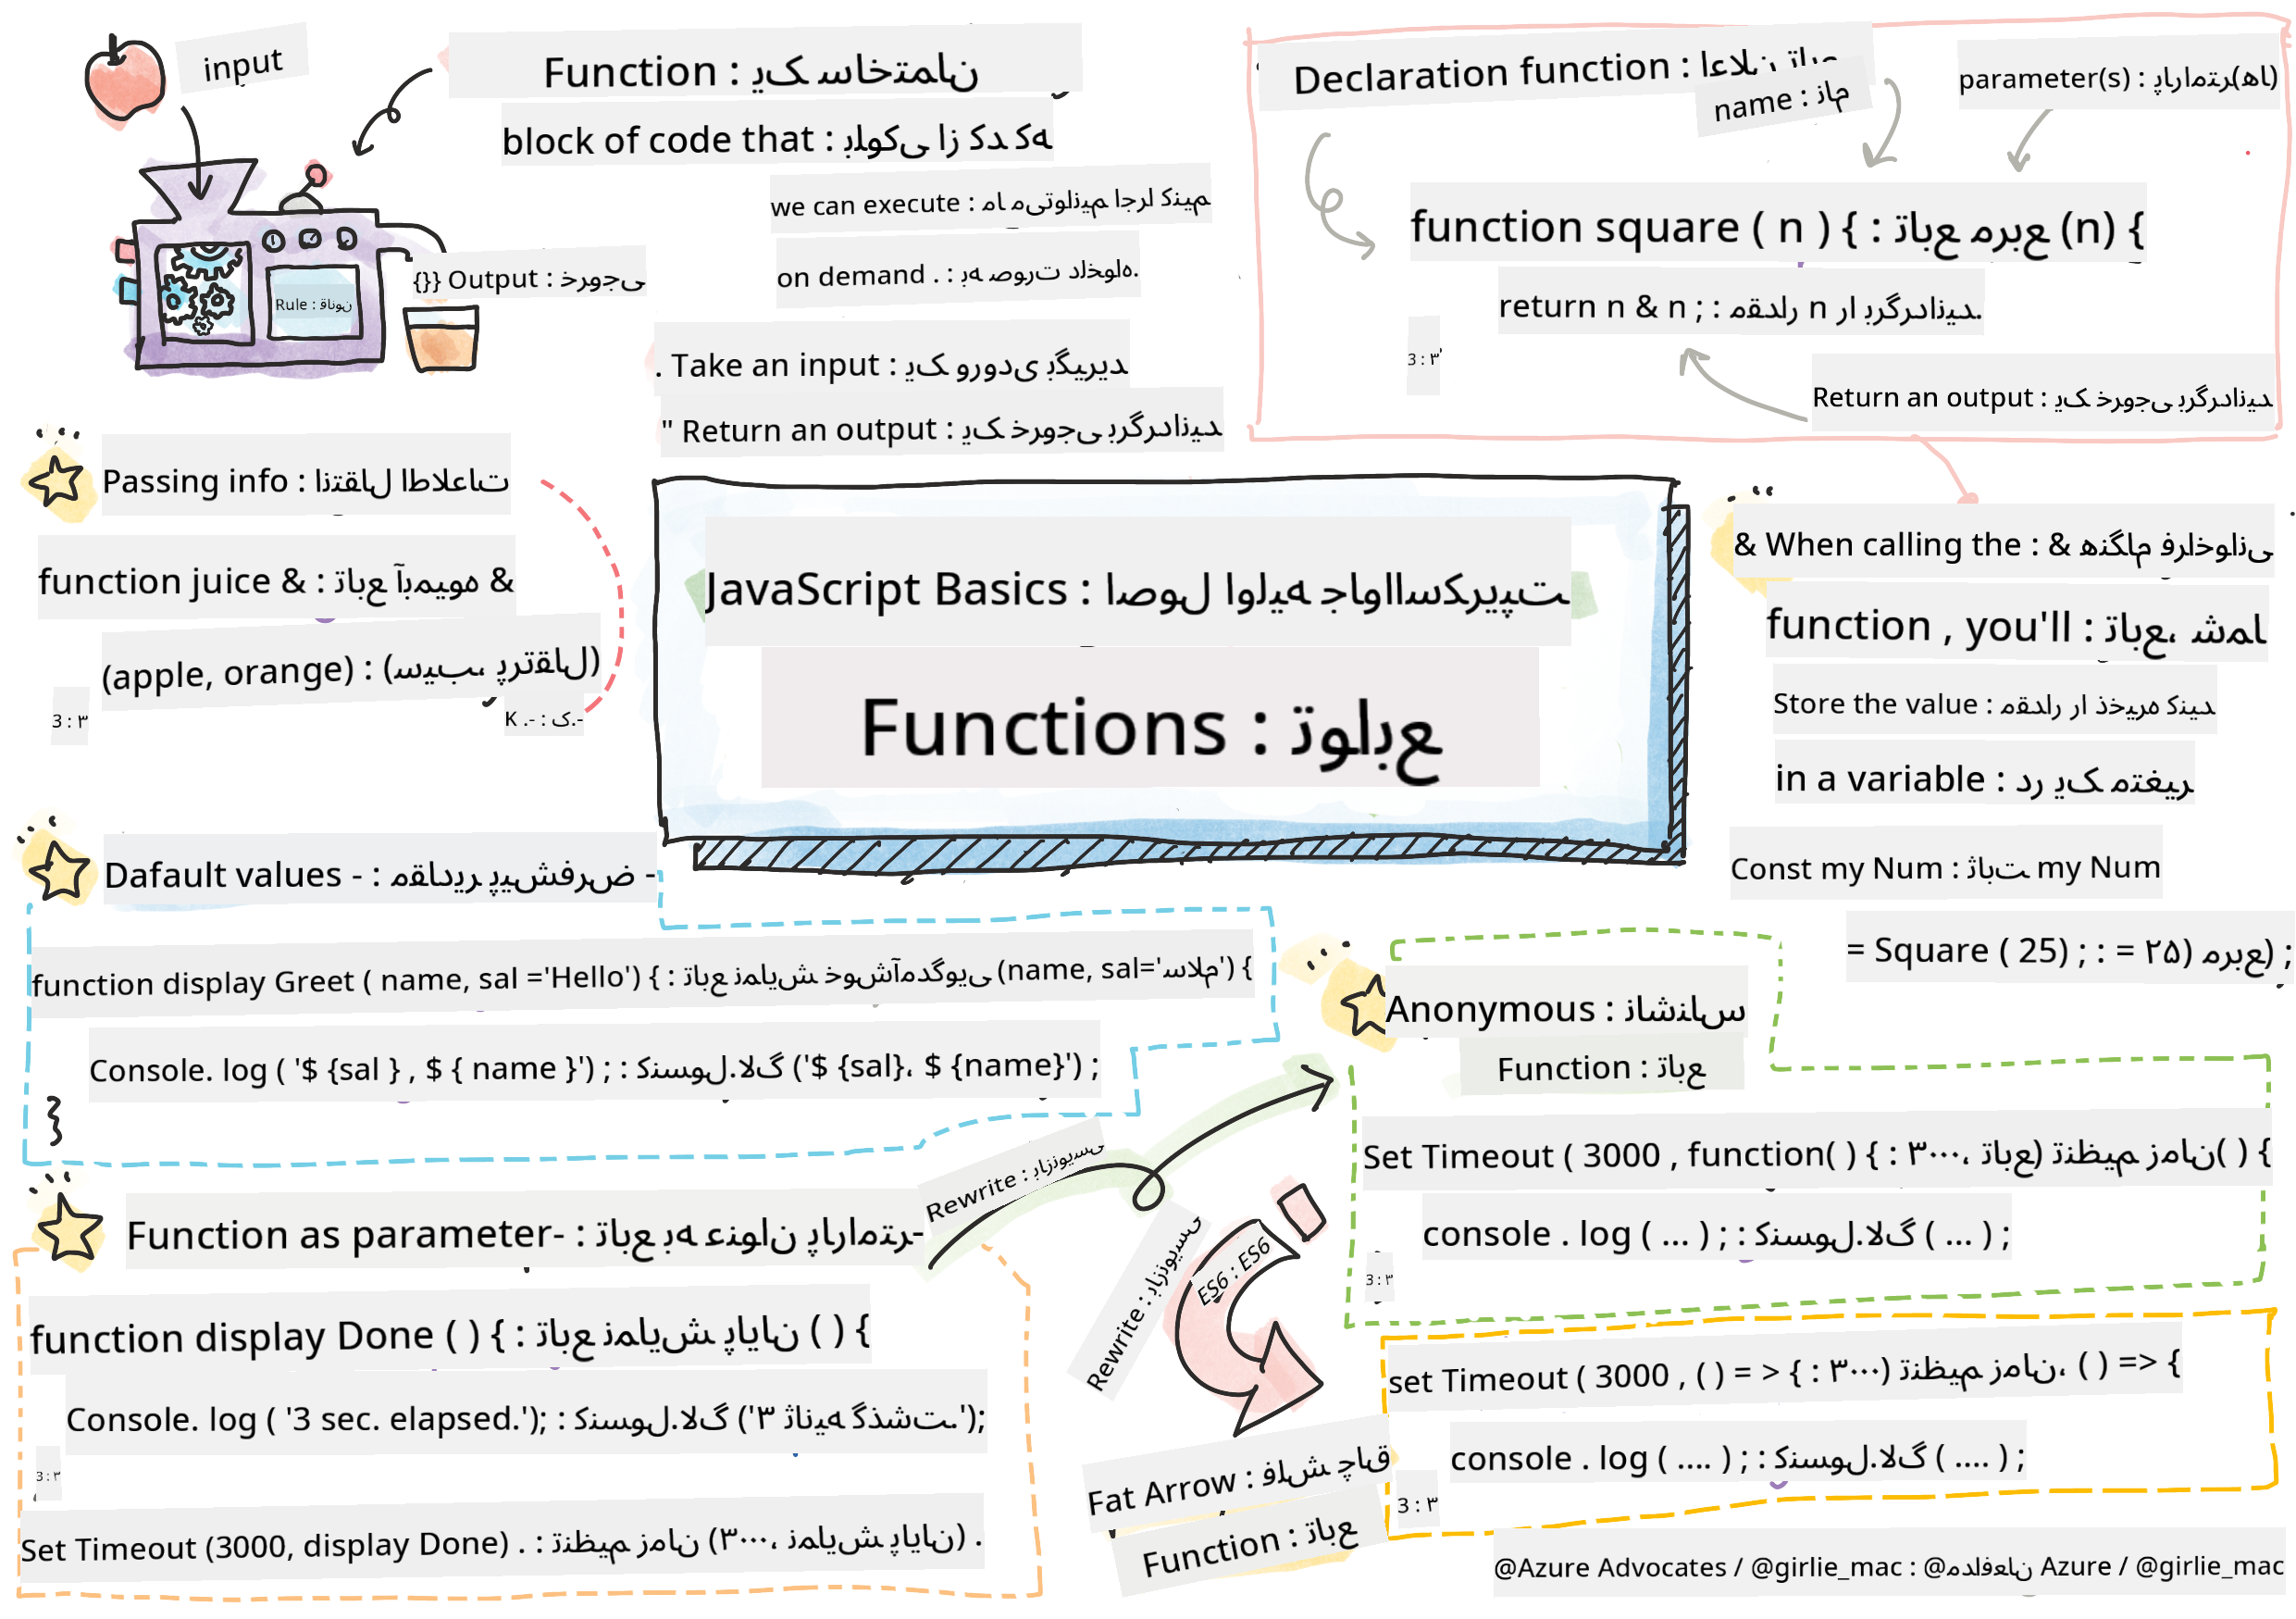 input
Function : یک ساختمان
block of code that : بلوکی از کد که
we can execute : ما می‌توانیم اجرا کنیم
on demand . : به صورت دلخواه.
{}} Output : خروجی
Rule : قانون
. Take an input : یک ورودی بگیرید
" Return an output : یک خروجی برگردانید
Declaration function : اعلان تابع
name : نام
parameter(s) : پارامتر(ها)
function square ( n ) { : تابع مربع (n) {
return n & n ; : مقدار n را برگردانید.
3 : ۳
Return an output : یک خروجی برگردانید
Passing info : انتقال اطلاعات
function juice & : تابع آبمیوه &
(apple, orange) : (سیب، پرتقال)
3 : ۳
K .- : ک.-
JavaScript Basics : اصول اولیه جاوااسکریپت
Functions : توابع
& When calling the : & هنگام فراخوانی
function , you'll : تابع، شما
Store the value : مقدار را ذخیره کنید
in a variable : در یک متغیر
Const my Num : ثابت my Num
= Square ( 25) ; : = مربع (۲۵) ;
Dafault values - : مقادیر پیش‌فرض -
function display Greet ( name, sal ='Hello') { : تابع نمایش خوش‌آمدگویی (name, sal='سلام') {
Console. log ( '$ {sal } , $ { name }') ; : کنسول.لاگ ('$ {sal}، $ {name}') ;
Anonymous : ناشناس
Function : تابع
Set Timeout ( 3000 , function( ) { : تنظیم زمان (۳۰۰۰، تابع( ) {
console . log ( ... ) ; : کنسول.لاگ ( ... ) ;
3 : ۳
Rewrite : بازنویسی
Rewrite : بازنویسی
ES6 : ES6
Function as parameter- : تابع به عنوان پارامتر-
function display Done ( ) { : تابع نمایش پایان ( ) {
Console. log ( '3 sec. elapsed.'); : کنسول.لاگ ('۳ ثانیه گذشت.');
3 : ۳
Set Timeout (3000, display Done) . : تنظیم زمان (۳۰۰۰، نمایش پایان) .
set Timeout ( 3000 , ( ) = > { : تنظیم زمان (۳۰۰۰، ( ) => {
console . log ( .... ) ; : کنسول.لاگ ( .... ) ;
3 : ۳
Fat Arrow : فلش چاق
Function : تابع
@Azure Advocates / @girlie_mac : @مدافعان Azure / @girlie_mac